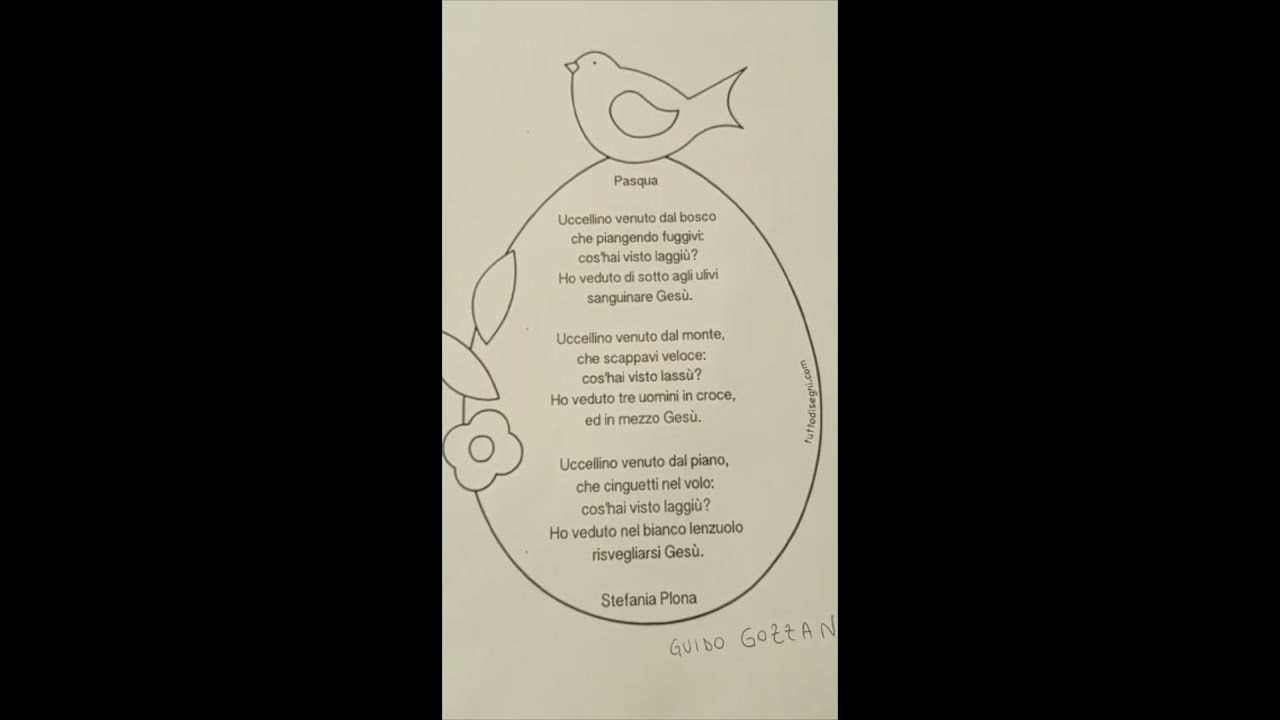 Pasqua
Uccellino venuto dal bosco
che piangendo fuggivi:
cos'hai visto laggiù?
Ho veduto di sotto agli ulivi
sanguinare Gesù.
Uccellino venuto dal monte,
che scappavi veloce:
cos'hai visto lassù?
Ho veduto tre uomini in croce,
ed in mezzo Gesù.
Uccellino venuto dal piano,
che cinguetti nel volo:
cos'hai visto laggiù?
Ho veduto nel bianco lenzuolo
risvegliarsi Gesù.
Stefania Plona
tuttodisegni.com
GUIDO GOZZAN